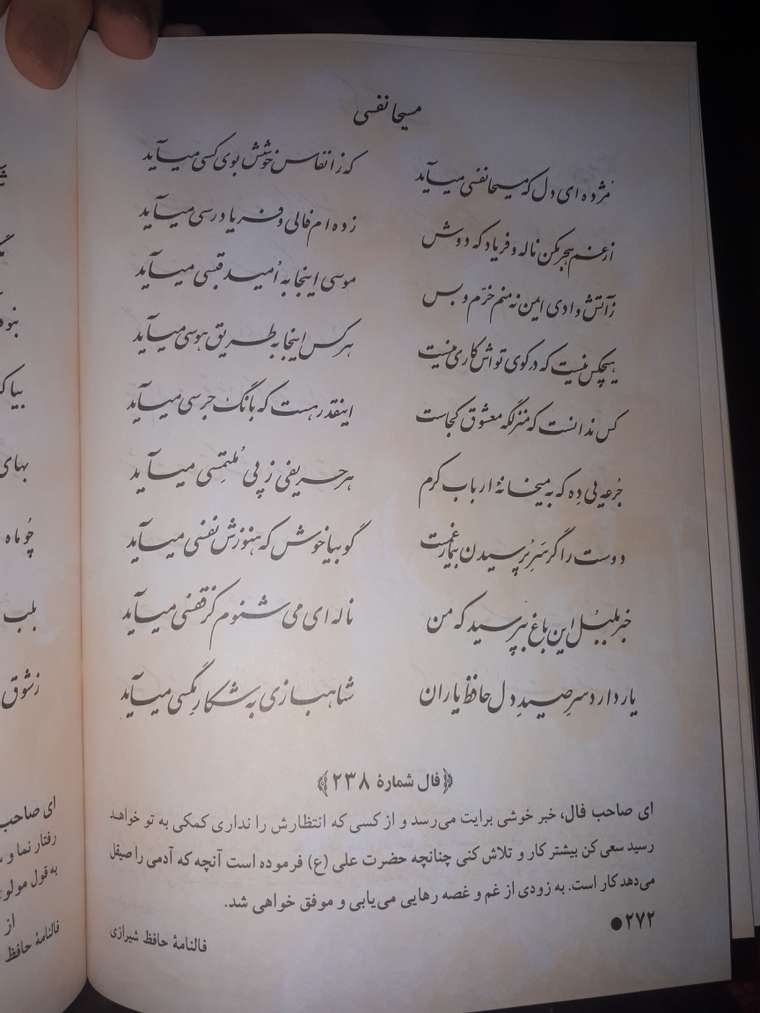 مسیحا نفسی
مُژده ای دل که مسیحا نفسی میآید
که ز انفاس خوشش بوی کسی میآید
از غم هجر مکن ناله و فریاد که دوش
زده ام فالی و فریاد رسی میآید
زآتش وادی ایمن نه منم خرّم و بس
موسی اینجا به اُمید قبسی میآید
هیچکس نیست که در کوی تواش کاری نیست
هر کس اینجا به طریق هوسی میآید
کس ندانست که منزلگه معشوق کجاست
اینقدر هست که بانگ جرسی میآید
جُرعه یی ده که به میخانهٔ ارباب کرم
هر حریفی ز پی مُلتمسی میآید
دوست را گر سَرِ پُرسیدن بیمار غمست
گو بیا خوش که هنوزش نفسی میآید
خبر بلبُل این باغ بپرسید که من
ناله ای می شنوم کز قفسی میآید
یار دارد سرِ صیدِ دل حافظ یاران
شاهبازی به شکار مگسی میآید
﴿فال شمارهٔ ۲۳۸﴾
ای صاحب فال، خبر خوشی برایت می‌رسد و از کسی که انتظارش را نداری کمکی به تو خواهد
رسید سعی کن بیشتر کار و تلاش کنی چنانچه حضرت علی (ع) فرموده است آنچه که آدمی را صیقل
می‌دهد کار است. به زودی از غم و غصه رهایی می‌یابی و موفق خواهی شد.
۲۷۲●
فالنامهٔ حافظ شیرازی
بیا ک
بهای
چُو ماه
بلب
زشوق
ای صاحب
رفتار نما و
به قول مولو
از
فالنامهٔ حافظ